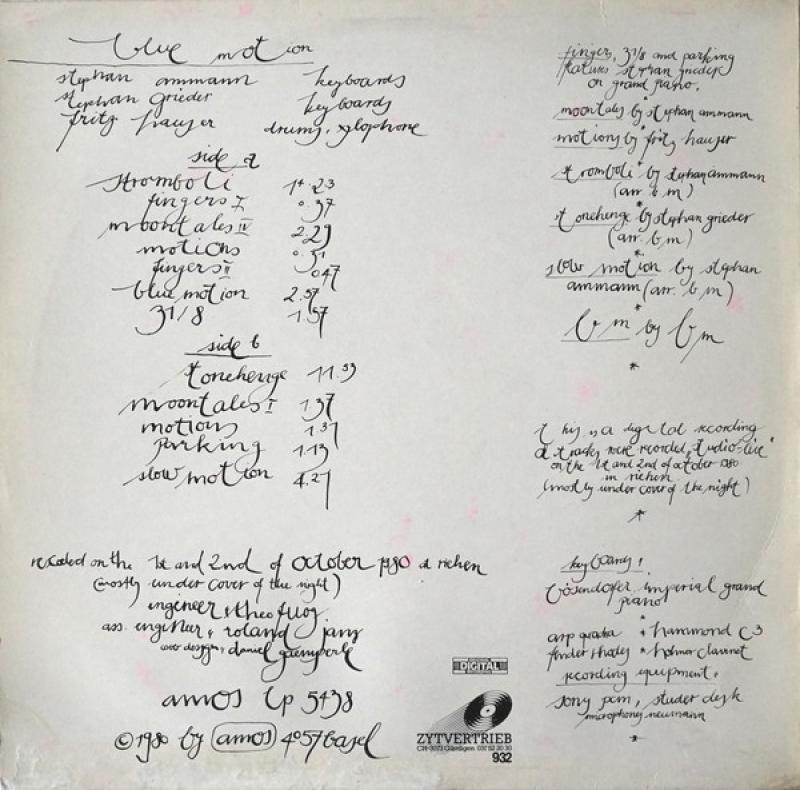 blue motion
stephan ammann keyboards
stephan grieder keyboards
fritz hauser drums, xylophone
side a
stromboli 14.23
fingers I 0.37
moontales IV 2.29
motions 0.31
fingers II 0.47
blue motion 2.57
31/8 1.57
side b
stonehenge 11.53
moontales I 1.37
motions 1.31
parking 1.13
slow motion 4.27
recorded on the 1st and 2nd of october 1980 at riehen
(mostly under cover of the night)
engineer: theo fuog
ass. engineer: roland
cover design: daniel
amos lp 5438
©1980 by amos 4057 basel
fingers, 31/8 and parking
features stephan grieder
on grand piano.
*
moontales by stephan ammann
*
motions by fritz hauser
*
stromboli by stephan ammann
(arr. b m)
*
stonehenge by stephan grieder
(arr. b m)
*
slow motion by stephan
ammann (arr. b m)
*
b m by b m
*
this is a digital recording
all tracks were recorded "studio-live"
on the 1st and 2nd of october 1980
in riehen
(mostly under cover of the night)
*
keyboards:
bösendorfer imperial grand
piano
arp quadra * hammond c3
fender rhodes * hohner clavinet
recording equipment:
sony pcm, studer desk
microphones neumann
*
DIGITAL
ZYTVERTRIEB
932